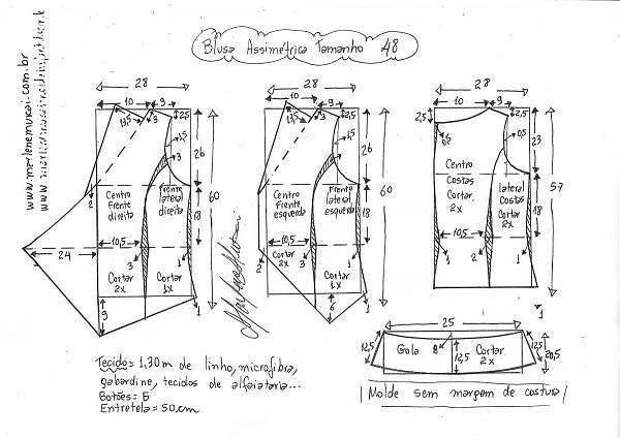 Blusa Assimétrica Tamanho 48
www.marlenemukai.com.br
28
10
9
13,5
3
2,5
1,5
3
26
60
2
Centro
Frente
direita
Frente
lateral
direita
18
10,5
24
3
1
Cortar
2x
Cortar
1x
9
1
28
10
9
13,5
3
2,5
1,5
3
26
60
Centro
Frente
esquerda
Frente
lateral
esquerda
18
10,5
2
Cortar
2x
3
1
Cortar
1x
6
1
28
10
9
2,5
2,5
0,5
23
57
Centro
Costas
Cortar
2x
lateral
Costas
Cortar
2x
18
10,5
1
2
1
1
25
12,5
Gola
2
12,5
Cortar
2x
12,5
20,5
Tecido = 1,30m de linho, microfibra,
gabardine, tecidos de alfaiataria...
Botões = 5
Entretela = 50cm
Molde sem margem de costura